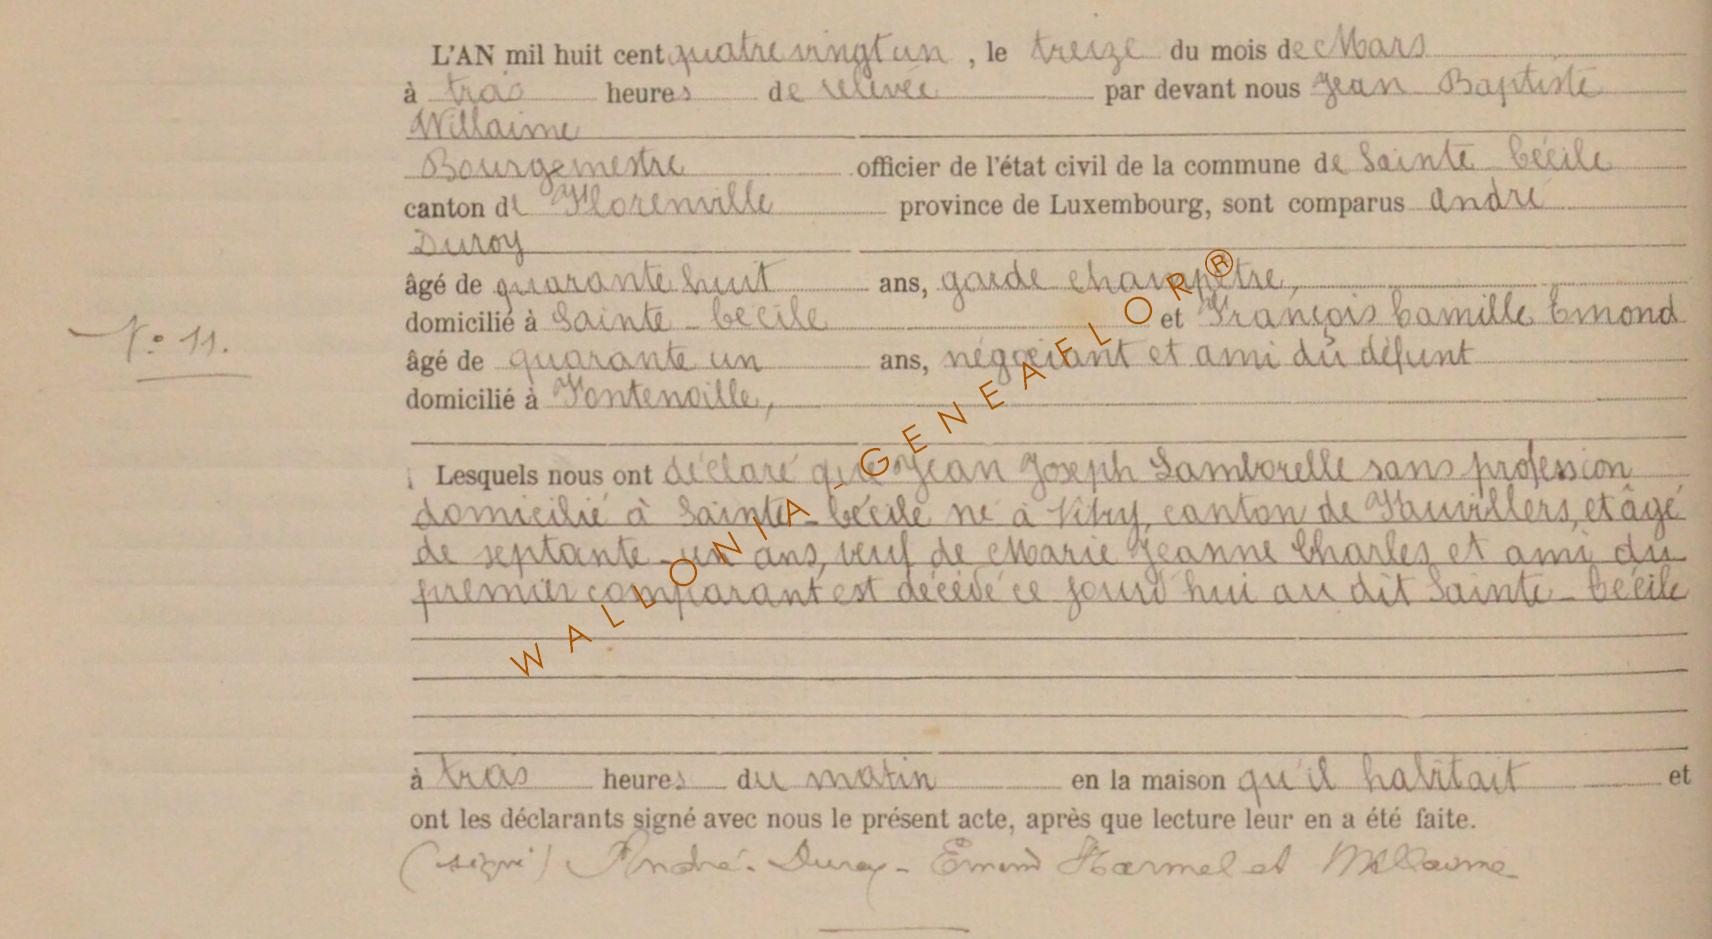 L'AN mil huit cent quatre vingt un, le treize du mois de Mars
à trois heures de relevée par devant nous Jean Baptiste
Willaime
Bourgemestre officier de l'état civil de la commune de Sainte-Cécile
canton de Florenville province de Luxembourg, sont comparus André
Duroy
âgé de quarante huit ans, garde champêtre,
domicilié à Sainte-Cécile et François Camille Emond
N.º 11.
âgé de quarante un ans, négociant et ami du défunt
domicilié à Fontenoille,
Lesquels nous ont déclaré que Jean Joseph Lamborelle sans profession
domicilié à Sainte-Cécile né à Vitry, canton de Fauvillers, et âgé
de septante-un ans, veuf de Marie Jeanne Charles et ami du
premier comparant est décédé ce jourd'hui au dit Sainte-Cécile
à trois heures du matin en la maison qu'il habitait et
ont les déclarants signé avec nous le présent acte, après que lecture leur en a été faite.
(signé) André. Duroy - Emond Harmel et Willaime
WALLONIA-GENEAFLOR®